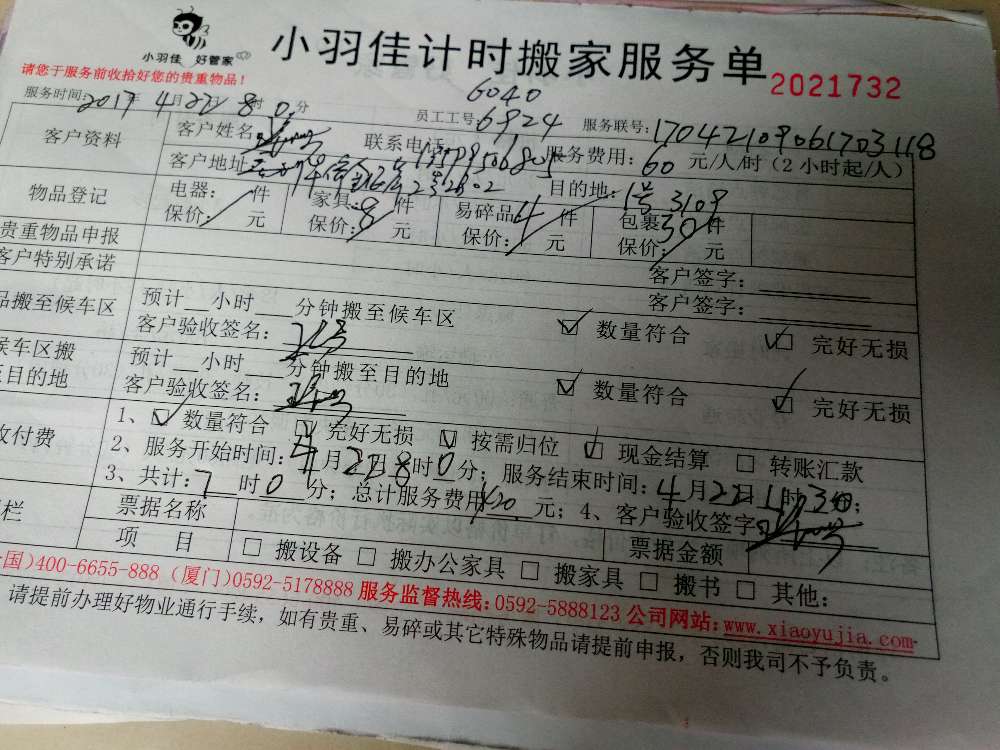 小羽佳 好管家
小羽佳计时搬家服务单 2021732
请您于服务前收拾好您的贵重物品!
6040
服务时间: 2017年4月22日8时0分 员工工号: 6924 服务联号: 17042109061703118
客户资料 客户姓名: 联系电话: 服务费用: 60 元/人/时(2小时起/人)
客户地址: 目的地: 1号3109
物品登记 电器: 件 家具: 8 件 易碎品 4 件 包裹 30 件
保价: 元 保价: 元 保价: 元 保价: 元
贵重物品申报
客户签字:
客户特别承诺
客户签字:
品搬至候车区 预计 小时 分钟搬至候车区
客户验收签名: ☑ 数量符合 ☑ 完好无损
候车区搬 预计 小时 分钟搬至目的地
至目的地 客户验收签名: ☑ 数量符合 ☑ 完好无损
收付费 1、☑ 数量符合 ☑ 完好无损 ☑ 按需归位 ☑ 现金结算 □ 转账汇款
2、服务开始时间: 4月22日8时0分; 服务结束时间: 4月22日
3、共计: 7时0分; 总计服务费用 元; 4、客户验收签字
栏 票据名称 票据金额
项 目 □ 搬设备 □ 搬办公家具 □ 搬家具 □ 搬书 □ 其他:
国)400-6655-888 (厦门)0592-5178888 服务监督热线: 0592-5888123 公司网站: www.xiaoyujia.com
请提前办理好物业通行手续, 如有贵重、易碎或其它特殊物品请提前申报, 否则我司不予负责。